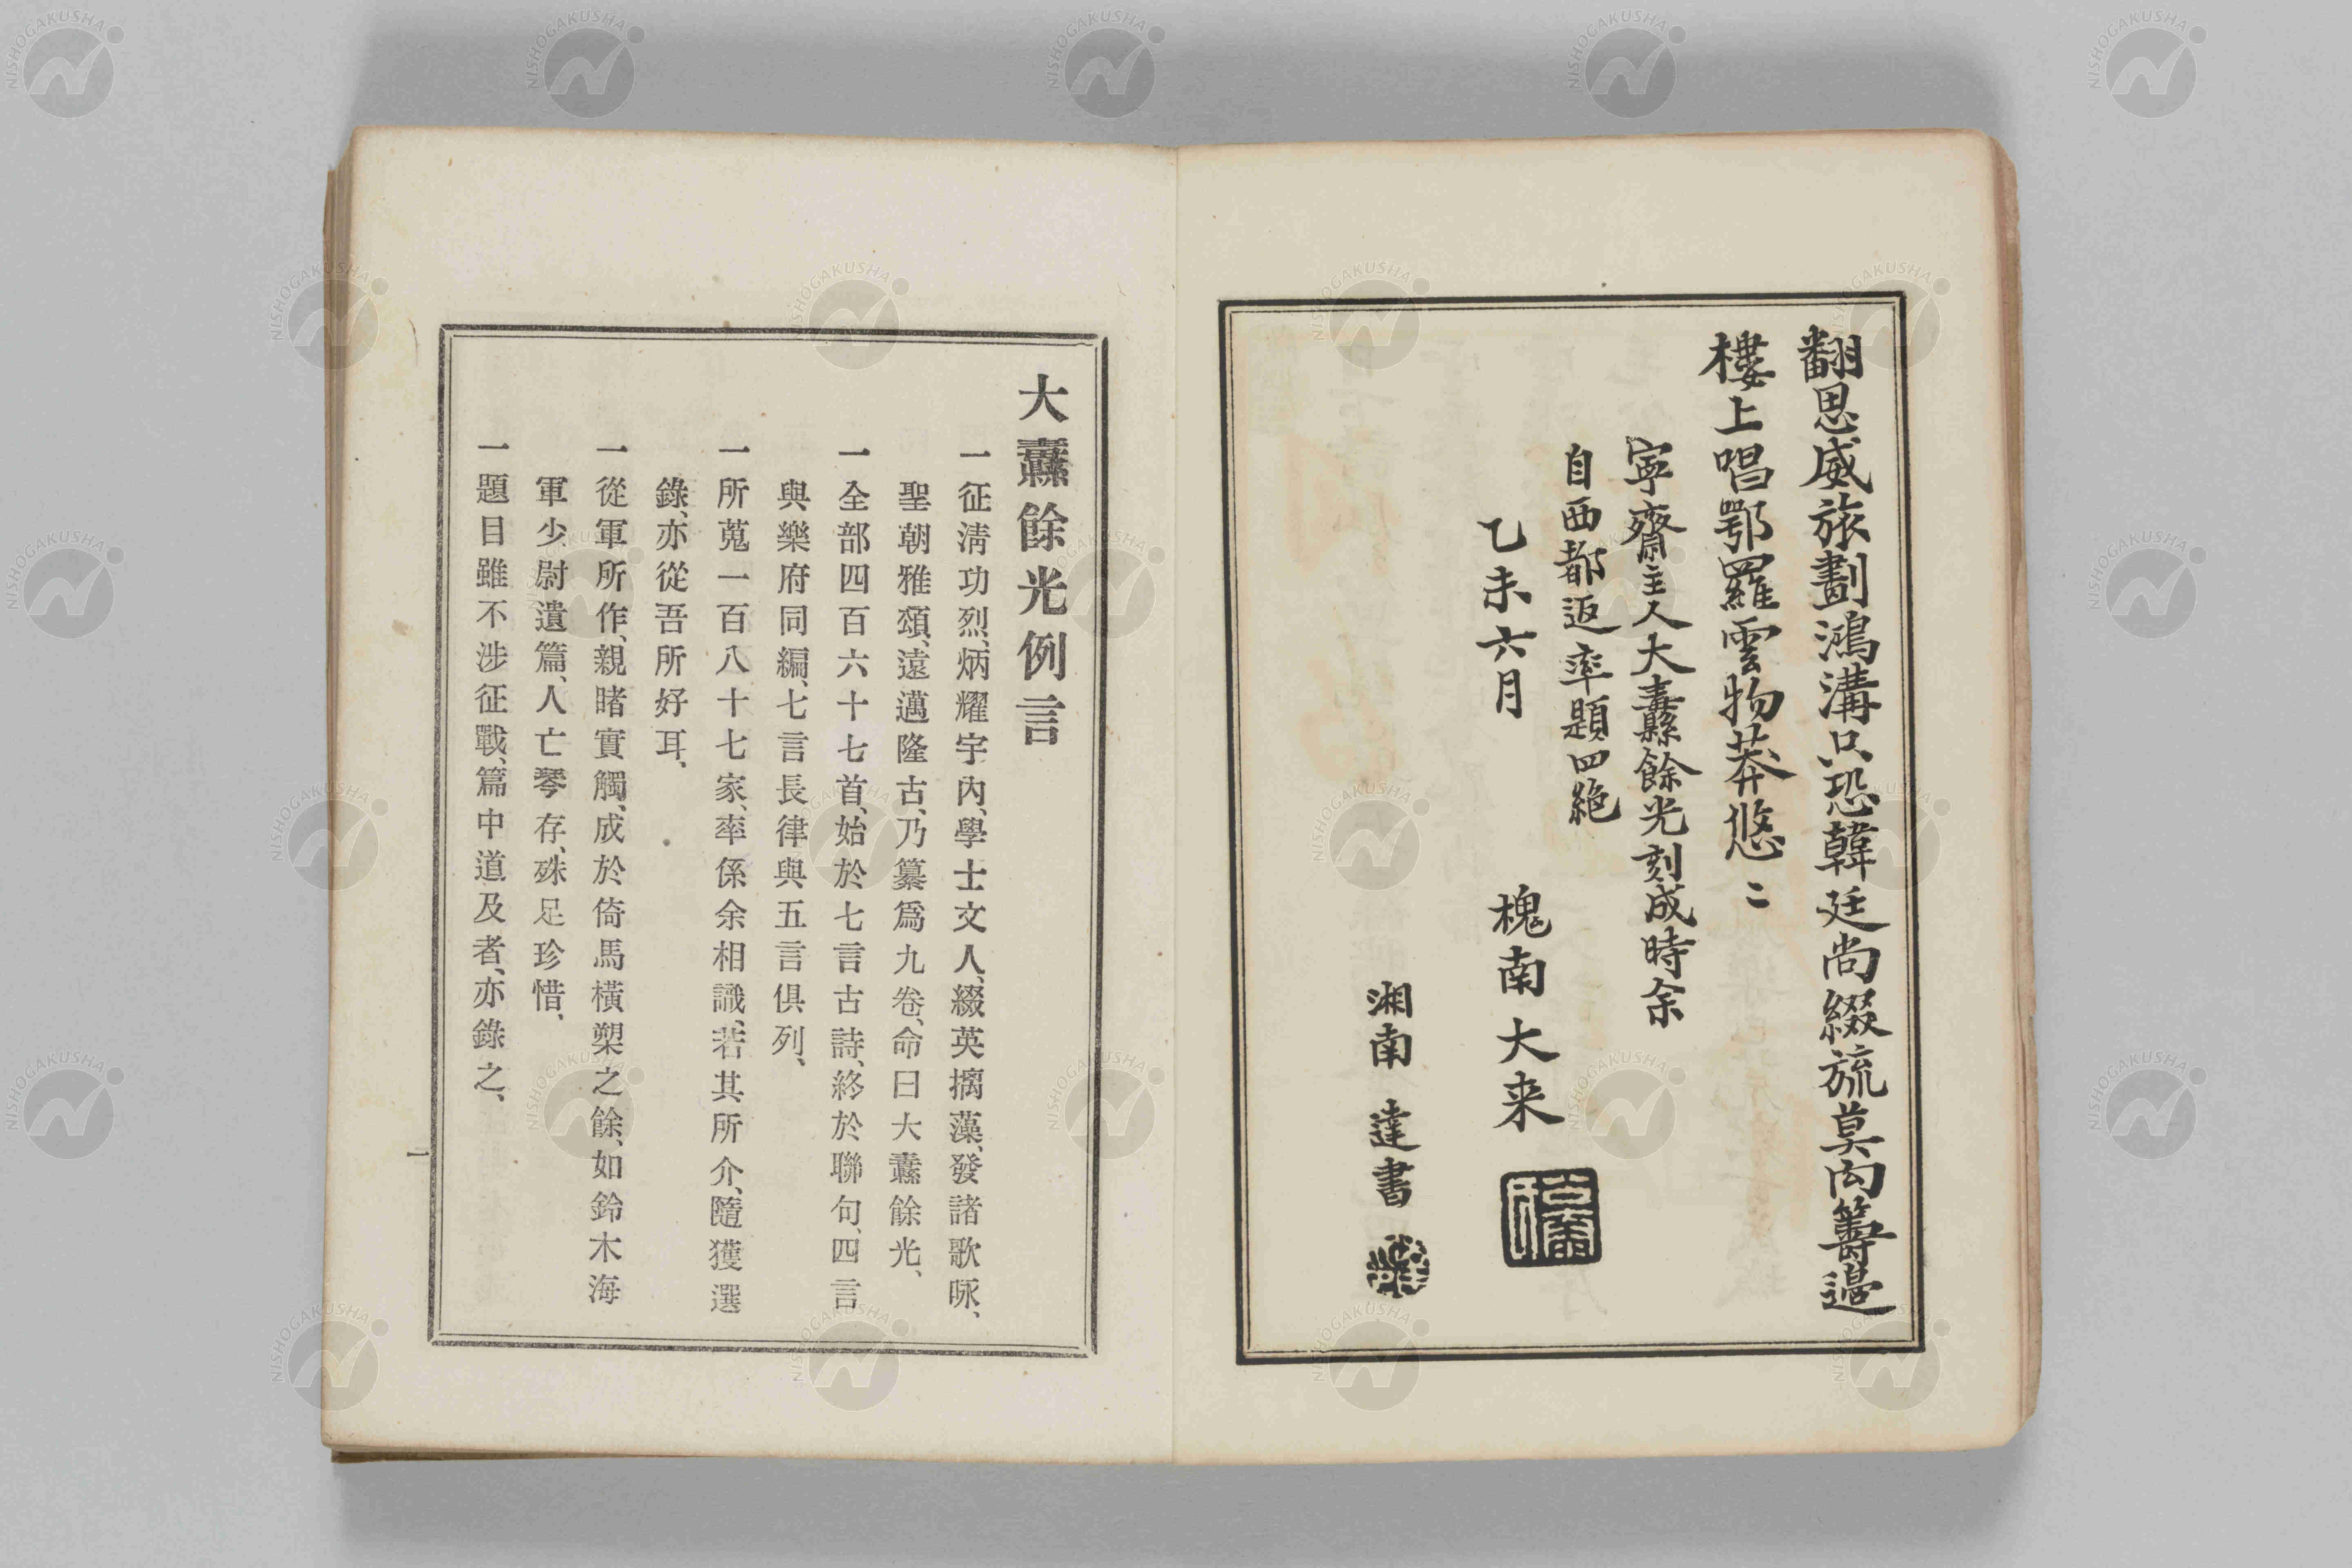 翻恩威旅劃鴻溝只恐韓廷尚綴旒莫向籌邊
樓上唱鄂羅雲物莽悠〻
寧齋主人大纛餘光刻成時余
自西都返率題四絶
乙未六月
槐南大来
湘南達書
大纛餘光例言
一征淸功烈、炳耀宇內、學士文人、綴英摛藻、發諸歌咏、
聖朝雅頌、遠邁隆古、乃纂爲九卷、命曰大纛餘光、
一全部四百六十七首、始於七言古詩、終於聯句、四言
與樂府同編、七言長律與五言俱列、
一所蒐一百八十七家、率係余相識、若其所介、隨獲選
錄、亦從吾所好耳、
一從軍所作、親睹實觸、成於倚馬橫槊之餘、如鈴木海
軍少尉遺篇、人亡琴存、殊足珍惜、
一題目雖不涉征戰、篇中道及者、亦錄之、
一
NISHOGAKUSHA